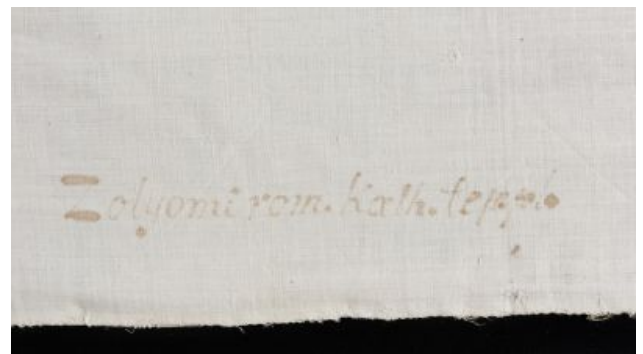 Zolyomi rom. Kath. templ.